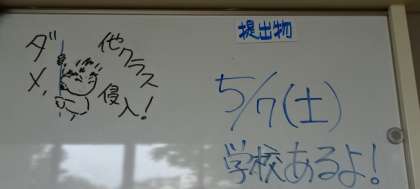 ダメ、
他クラス
侵入！
提出物
5/7(土)
学校あるよ！